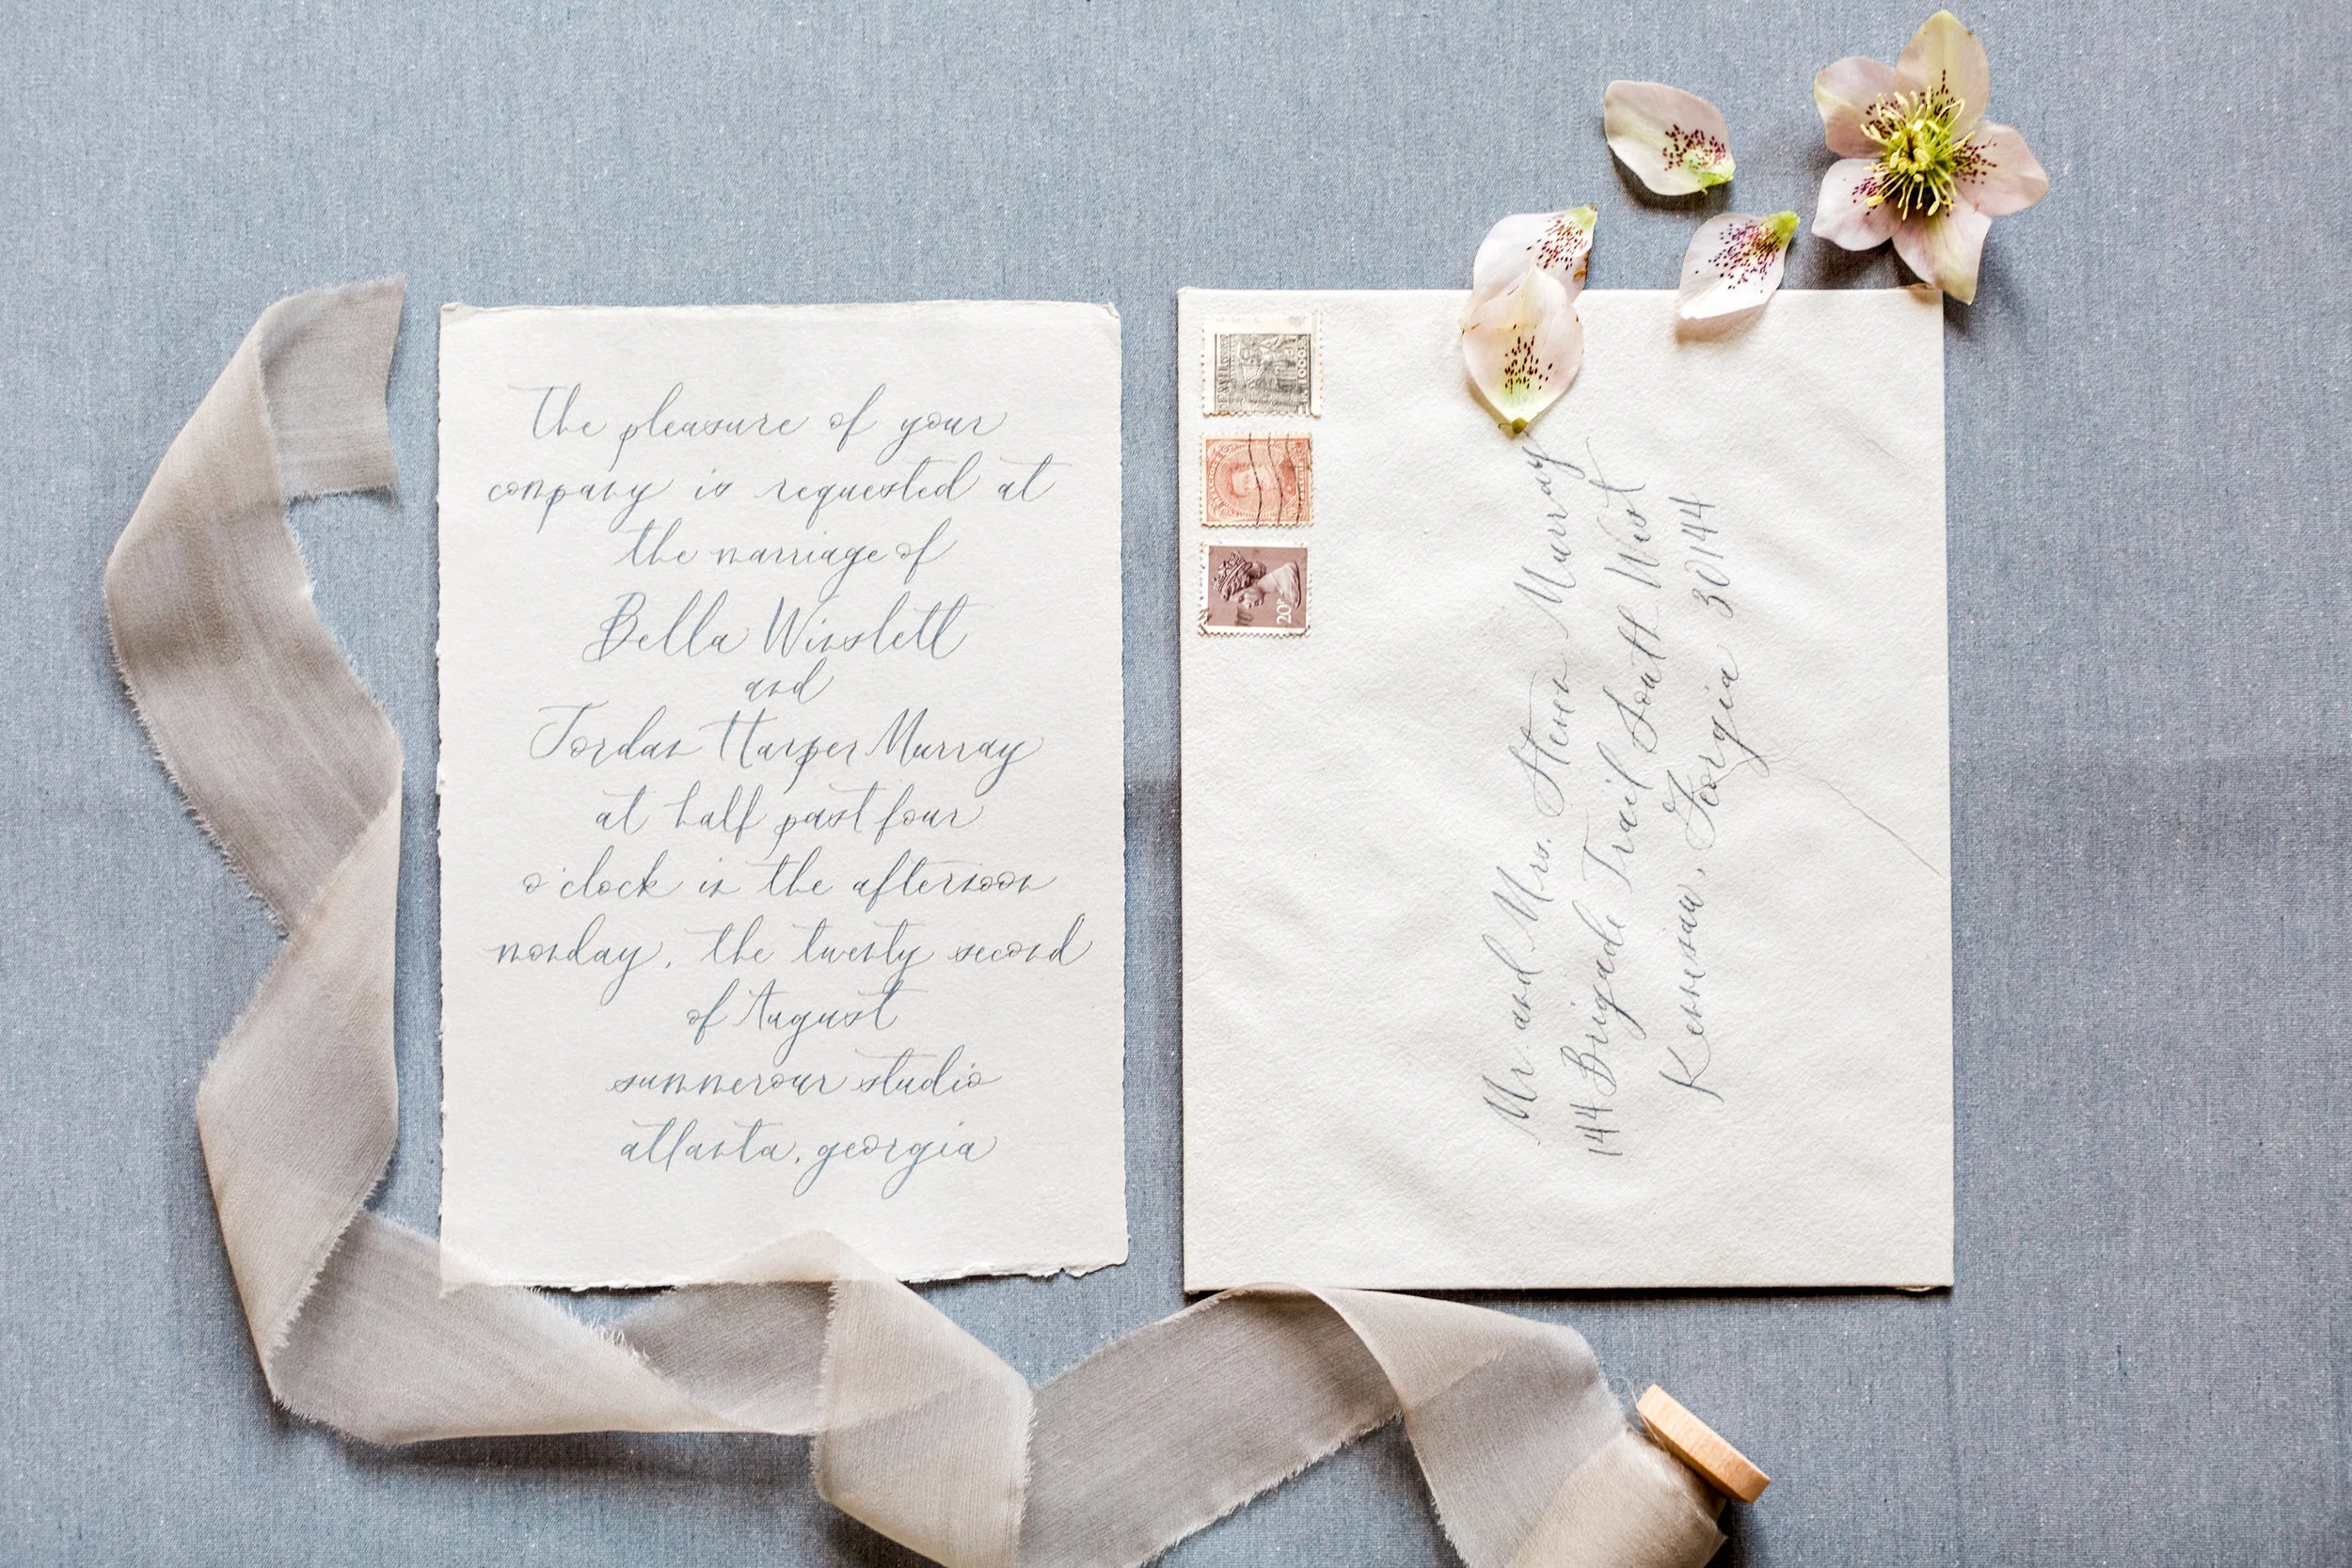 The pleasure of your
company is requested at
the marriage of
Bella Winslett
and
Jordan Harper Murray
at half past four
o'clock in the afternoon
monday, the twenty second
of August
summerour studio
atlanta, georgia
Mr. and Mrs. Steven Murray
144 Brigade Trail South West
Kennesaw, Georgia 30144
20P